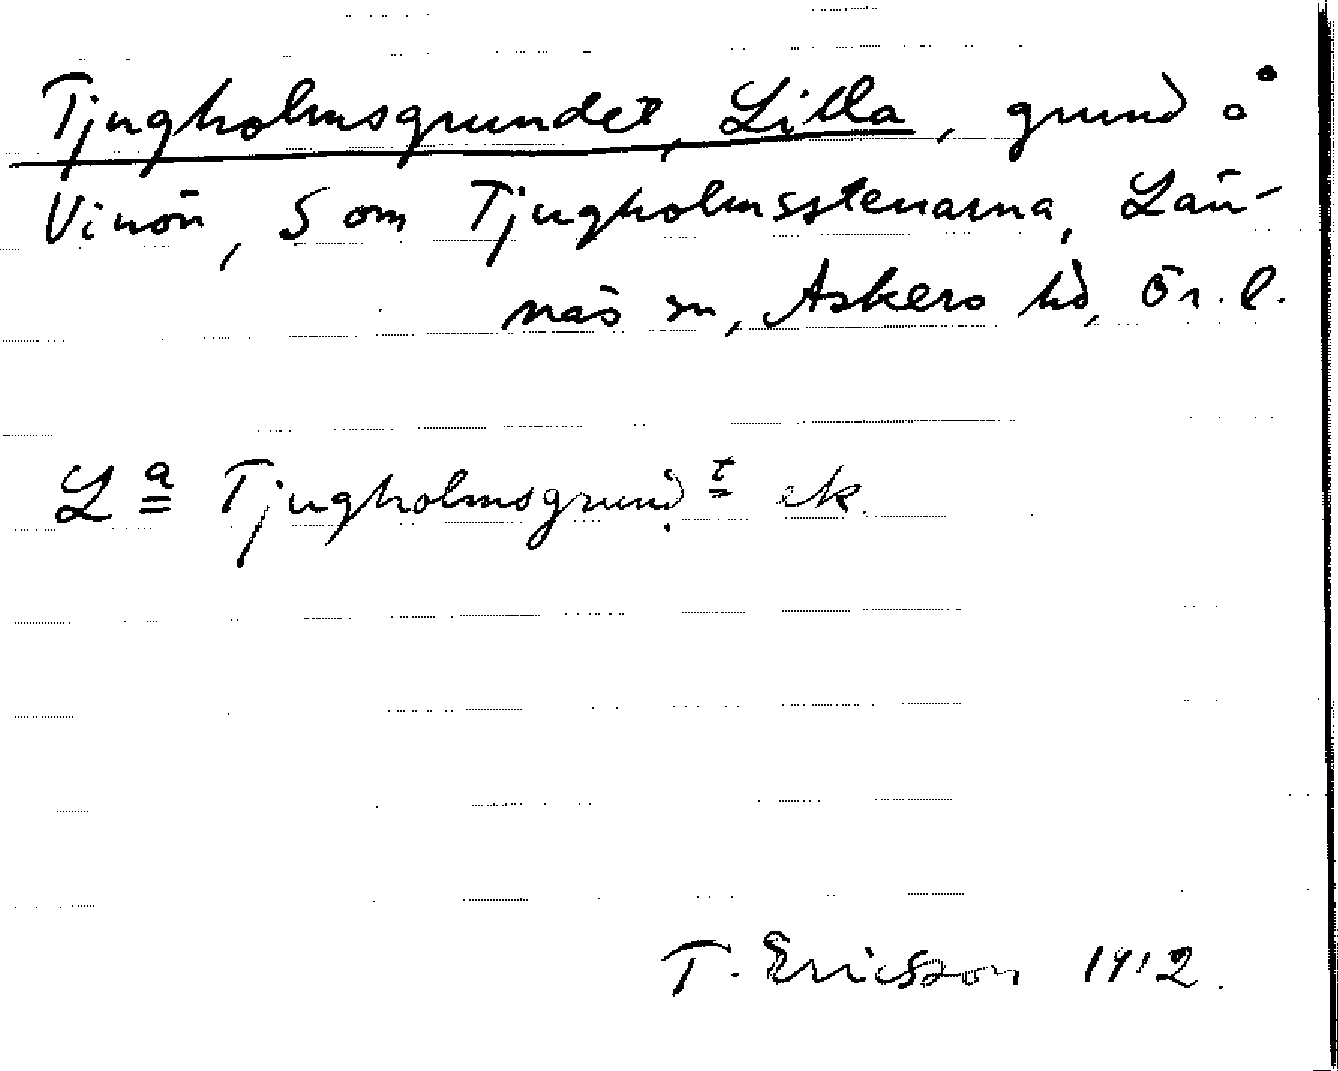 Tjugholmsgrundet, Lilla, grund å
Vinön, S om Tjugholmsstenarna, Län-
näs sn, Askers hd, Ör. l.
L a Tjugholmsgrund. t ek.
T. Ericsson 1912.